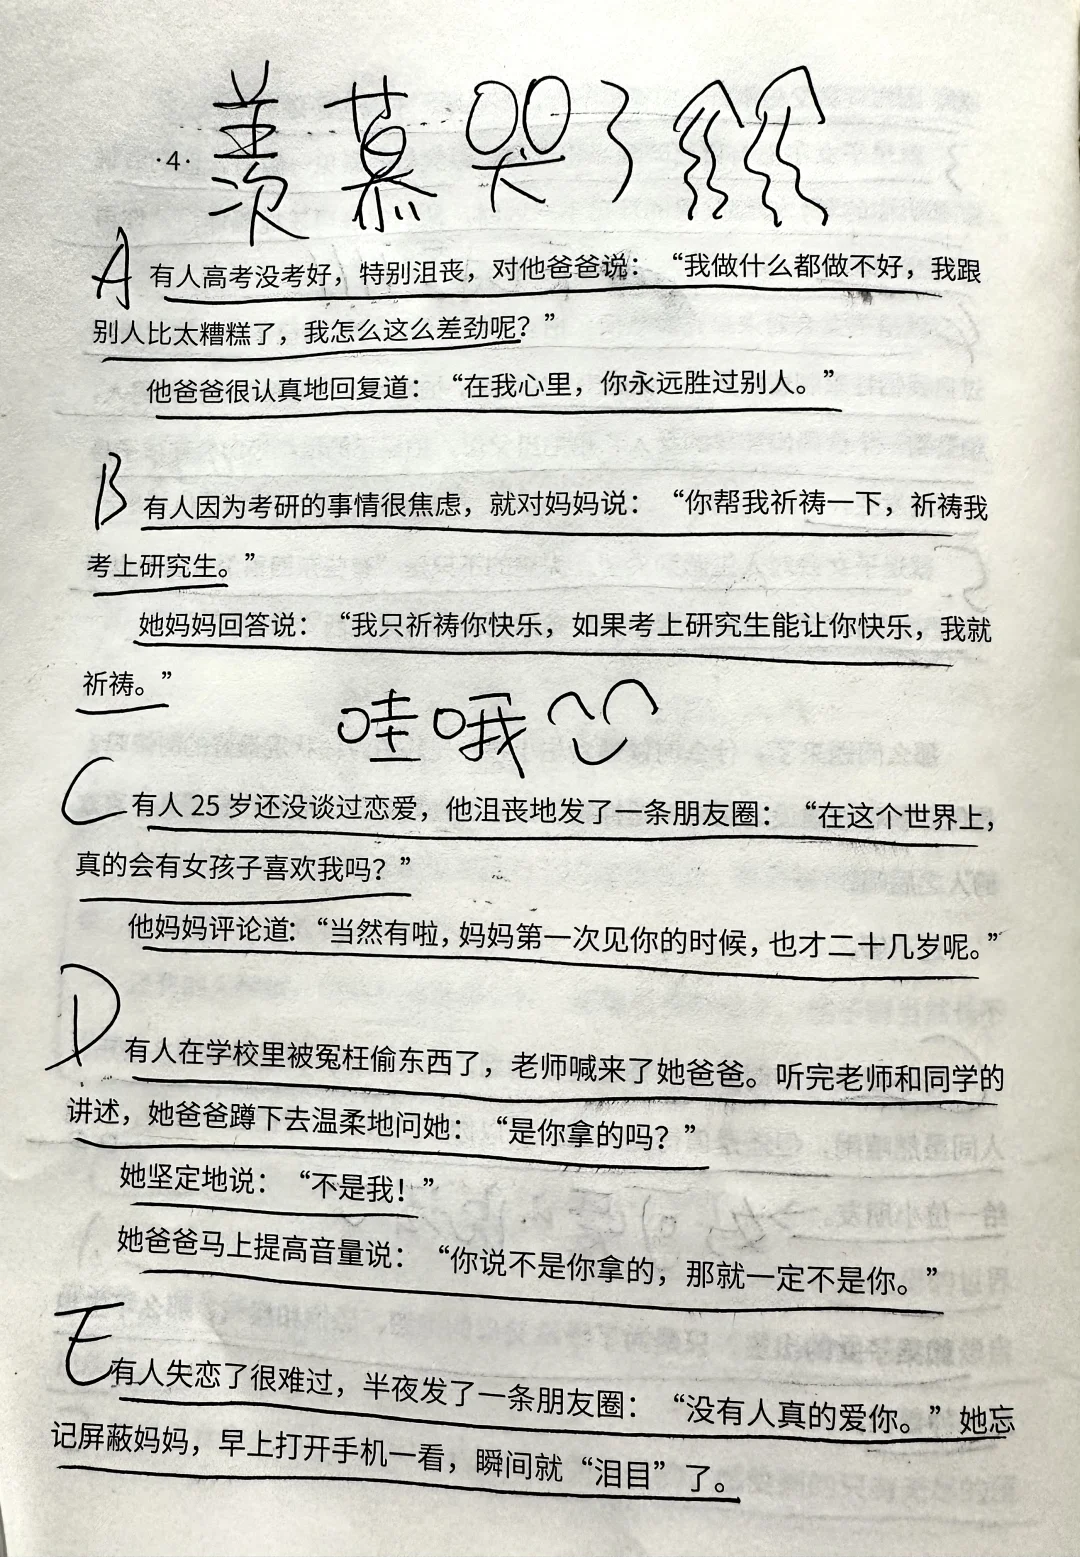 羡慕哭了
·4·
A 有人高考没考好，特别沮丧，对他爸爸说：“我做什么都做不好，我跟
别人比太糟糕了，我怎么这么差劲呢？”
他爸爸很认真地回复道：“在我心里，你永远胜过别人。”
B 有人因为考研的事情很焦虑，就对妈妈说：“你帮我祈祷一下，祈祷我
考上研究生。”
她妈妈回答说：“我只祈祷你快乐，如果考上研究生能让你快乐，我就
祈祷。”
哇哦
C 有人 25 岁还没谈过恋爱，他沮丧地发了一条朋友圈：“在这个世界上，
真的会有女孩子喜欢我吗？”
他妈妈评论道：“当然有啦，妈妈第一次见你的时候，也才二十几岁呢。”
D 有人在学校里被冤枉偷东西了，老师喊来了她爸爸。听完老师和同学的
讲述，她爸爸蹲下去温柔地问她：“是你拿的吗？”
她坚定地说：“不是我！”
她爸爸马上提高音量说：“你说不是你拿的，那就一定不是你。”
E 有人失恋了很难过，半夜发了一条朋友圈：“没有人真的爱你。”她忘
记屏蔽妈妈，早上打开手机一看，瞬间就“泪目”了。